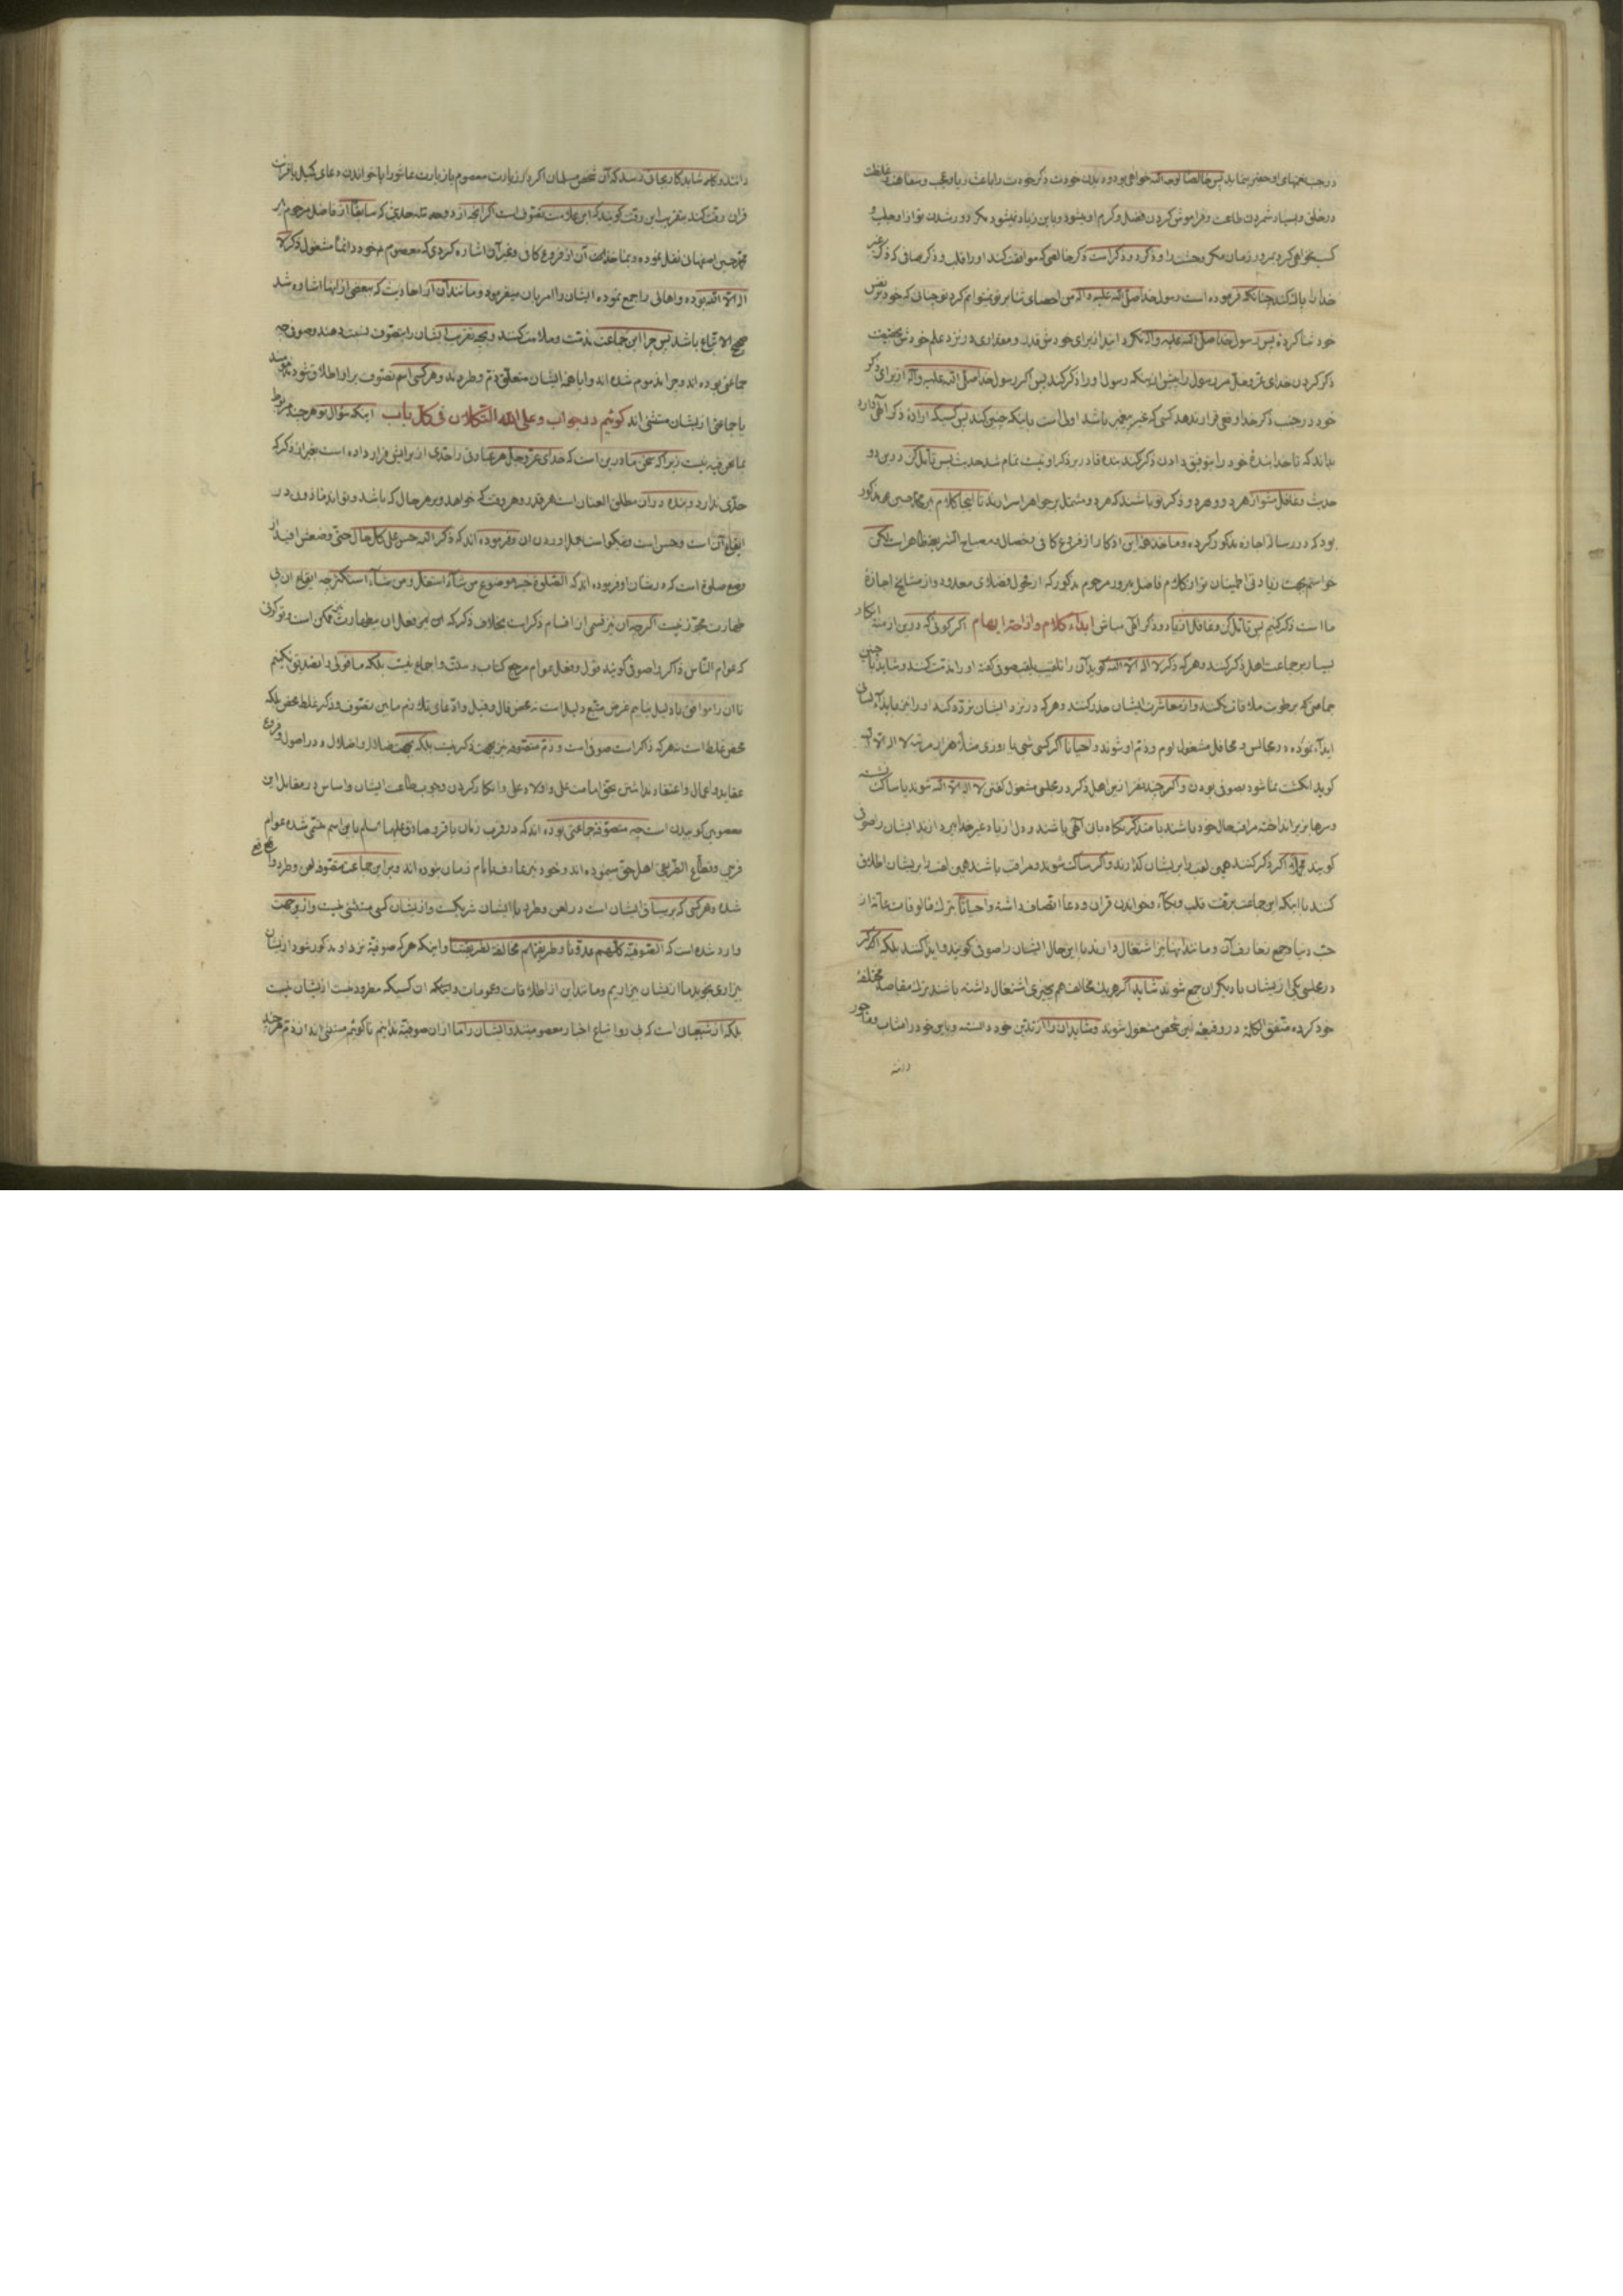 درجنب نعمتهای او حقیر نماید پس خالصا لوجه الله خواهی بود و دیدن خودت ذکر خودت را باعث ریا و عجب و سفاهت و غلظت
در خلق و بسیار شمردن طاعت و فراموش کردن فضل و کرم او میشود و باین زیاد نمیشود مگر دور شدن تو از او و جلب و
کسب نخواهی کرد بمرور زمان مگر وحشت را و ذکر دو ذکر است ذکر خالصی که موافقت کند او را قلب و ذکر صافی که ذکر غیر
خدا را باک کند چنانکه فرموده است رسول خدا صلی الله علیه و اله من احصای ثنا بر تو نمیتوانم کرد تو چنانی که خود بر نفس
خود ثنا کردهٔ پس رسول خدا صلی الله علیه و اله نگردانید از برای خودش قدر و مقداری در نزد علم خودش بحقیقت
ذکر کردن خدای عزوجل مر رسول را پیش از اینکه رسول او را ذکر کند پس اگر رسول خدا صلی الله علیه و اله از برای ذکر
خود در جنب ذکر خدا وقعی قرار ندهد کسی که غیر پیغمبر باشد اولی است باینکه چنین کند پس کسیکه اراده ذکر الهی دارد
بداند که تا خدا بندهٔ خود را بتوفیق دادن ذکر نکند بنده قادر بر ذکر او نیست تمام شد حدیث پس تأمل کن درین دو
حدیث و غافل مشو از هر دو و هر دو ذکر تو باشند که هر دو مشتمل بر جواهر اسرارند تا اینجا کلام میر محمد حسین مذکور
بود که در رسالهٔ اجازه مذکور کرده و ماخذ هذا این اذکار از فروع کافی و خصال و مصباح الشریعه ظاهر است لکن
خواستم بجهت زیادتی اطمینان تو از کلام فاضل مبرور مرحوم مذکور که از فحول و فضلای معدود و از مشایخ اجازهٔ
ما است ذکر کنیم پس تأمل کن و غافل از یاد و ذکر الهی مباش ابداء کلام و ازاحة ابهام اگر گوئی که درین ازمنه انکار
بسیار بر جماعت اهل ذکر کنند و هر که ذکر لا اله الا الله گوید آن را تلقیب بلقب صوفی کنند او را مذمت کنند و شاید با چنین
جماعتی که برطوبت ملاقات نکنند و از معاشرت ایشان حذر کنند و هر که در نزد ایشان تردد کند او را نیز بایذاء لسانی
ایذاء نموده در مجالس و محافل مشغول لوم و ذم او شوند و احیانا اگر کسی شبی یا روزی مثلا هزار مرتبه لا اله الا الله
گوید انگشت نما شود بصوفی بودن و اگر چند نفر از این اهل ذکر در مجلسی مشغول گفتن لا اله الا الله شوند یا ساکت نشسته
و سرها بزیر انداخته مراقب حال خود باشند یا متذکر نگاه بان الهی باشند و دل از یاد غیر خدا بپردازند ایشان را صوفی
گویند مجملا اگر ذکر کنند همین لقب را بر ایشان گذارند و اگر ساکت شوند و مراقب باشند همین لقب را بر ایشان اطلاق
کنند با اینکه این جماعت برقت قلب و بکاء و خواندن قران و دعا اتصاف داشته و احیانا بترک مالوفات عامه از
حب دنیا و جمع زخارف آن و مانند اینها نیز اشتغال دارند با این حال ایشان را صوفی گویند و ایذا کنند بلکه اگر ذکر
در مجلسی یکی از ایشان با دیگران جمع شوند شاید اگر هر یک مخالف هم بچیزی اشتغال داشته باشند ترک مقاصد مختلفهٔ
خود کرده متفق الکلمه در وقیعهٔ این شخص مشغول شوند و شاید ان را از تدین خود دانسته و باین خود را مثاب و ماجور
دانند
دانند و گاه شاید کار بجائی رسد که آن شخص مسلمان اگر در زیارت معصوم یا زیارت عاشورا یا خواندن دعای کمیل یا قرائت
قران رقت کند بتقریب این رقت گویند که این علامت تصوف است اگر اینجا از دوجه نه حدیثی که سابقا از فاضل مرحوم میر
محمد حسین اصفهانی نقل نموده و بماخذیت آن از فروع کافی و غیر آن اشاره کردی که معصوم م خود دائما مشغول ذکر لا
اله الا الله بوده و اهالی را جمع نموده ایشان را امر بان میفرمود و مانند آن از احادیث که ببعضی از اینها اشاره شد
صحیح الاتباع باشد پس چرا این جماعت مذمت و ملامت کنند و بچه تقریب ایشان را بتصوف نسبت دهند و صوفی چه
جماعتی بوده اند و چرا مذموم شده اند و ایا همهٔ ایشان متعلق ذم و طردند و هر کسی اسم تصوف بر او اطلاق شود مذمومند
یا جماعتی از ایشان مستثنی اند گوئیم در جواب و علی الله التکلان فی کل باب اینکه سؤال تو هر چند مربوط
بمانحن فیه نیست زیرا که سخن ما در این است که خدای عزوجل هر عبادتی را حدی از برایش قرار داده است بغیر از ذکر که
حدی ندارد و بنده در ان مطلق العنان است هر قدر و هر وقت که خواهد و بر هر حال که باشد و تواند ماذون در
ایقاع آن است و حسن است و نیکو است بعمل اوردن ان و فرموده اند که ذکر الله حسن علی کل حال حتی وضعش افید از
وضع صلوة است که در شان او فرموده اند که الصلوة خیر موضوع من شاء استقل و من شاء استکثر چه ایقاع ان بی
طهارت مجوز نیست اگر چه ان نیز قسمی از اقسام ذکر است بخلاف ذکر که ان نیز فعل ان بیطهارت ممکن است و تو گوئی
که عوام الناس ذاکر را صوفی گویند قول و فعل عوام مرجح کتاب و سنت و اجماع نیست بلکه ما قولی را تصدیق نکنیم
تا ان را موافق با دلیل نیابیم غرض متبع دلیل است نه محض قال و قیل و ادعای تلازم مابین تصوف و ذکر غلط محض بلکه
محض غلط است نه هر که ذاکر است صوفی است و ذم متصوفه نیز بجهت ذکر نیست بلکه بجهت ضلال و اضلال و در اصول و فروع
عقاید و اعمال و اعتقاد نداشتن بحق امامت علی و اولاد علی و انکار کردن وجوب طاعت ایشان و اساس در مقابل این
معصومین کوبیدن است چه متصوفه جماعتی بوده اند که در قرب زمان باقر و صادق علیهما السلم باین اسم متسمی شده عوام
فریبی و قطاع الطریقی اهل حق مینموده اند و خود نیز معارف با امام زمان نبوده اند و بر این جماعت متصوفه لعن و طرد واقع
شده و هر کس که بر سیاق ایشان است در لعن و طرد با ایشان شریکست و از ایشان کسی مستثنی نیست و از این جهت
وارد شده است که الصوفیة کلهم عدونا و طریقتهم مخالفة لطریقتنا و اینکه هر که صوفیه نزد او مذکور شود از ایشان
بیزاری نجوید ما از ایشان بیزاریم و مانند این از اطلاقات و عمومات و اینکه ان کسیکه مطرود نیست از ایشان نیست
بلکه از شیعیان است که پی رو اتباع اخبار معصومیند و ایشان را ما از ان صوفیه ندانیم تا گوئیم مستثنی اند از ذم هر چند